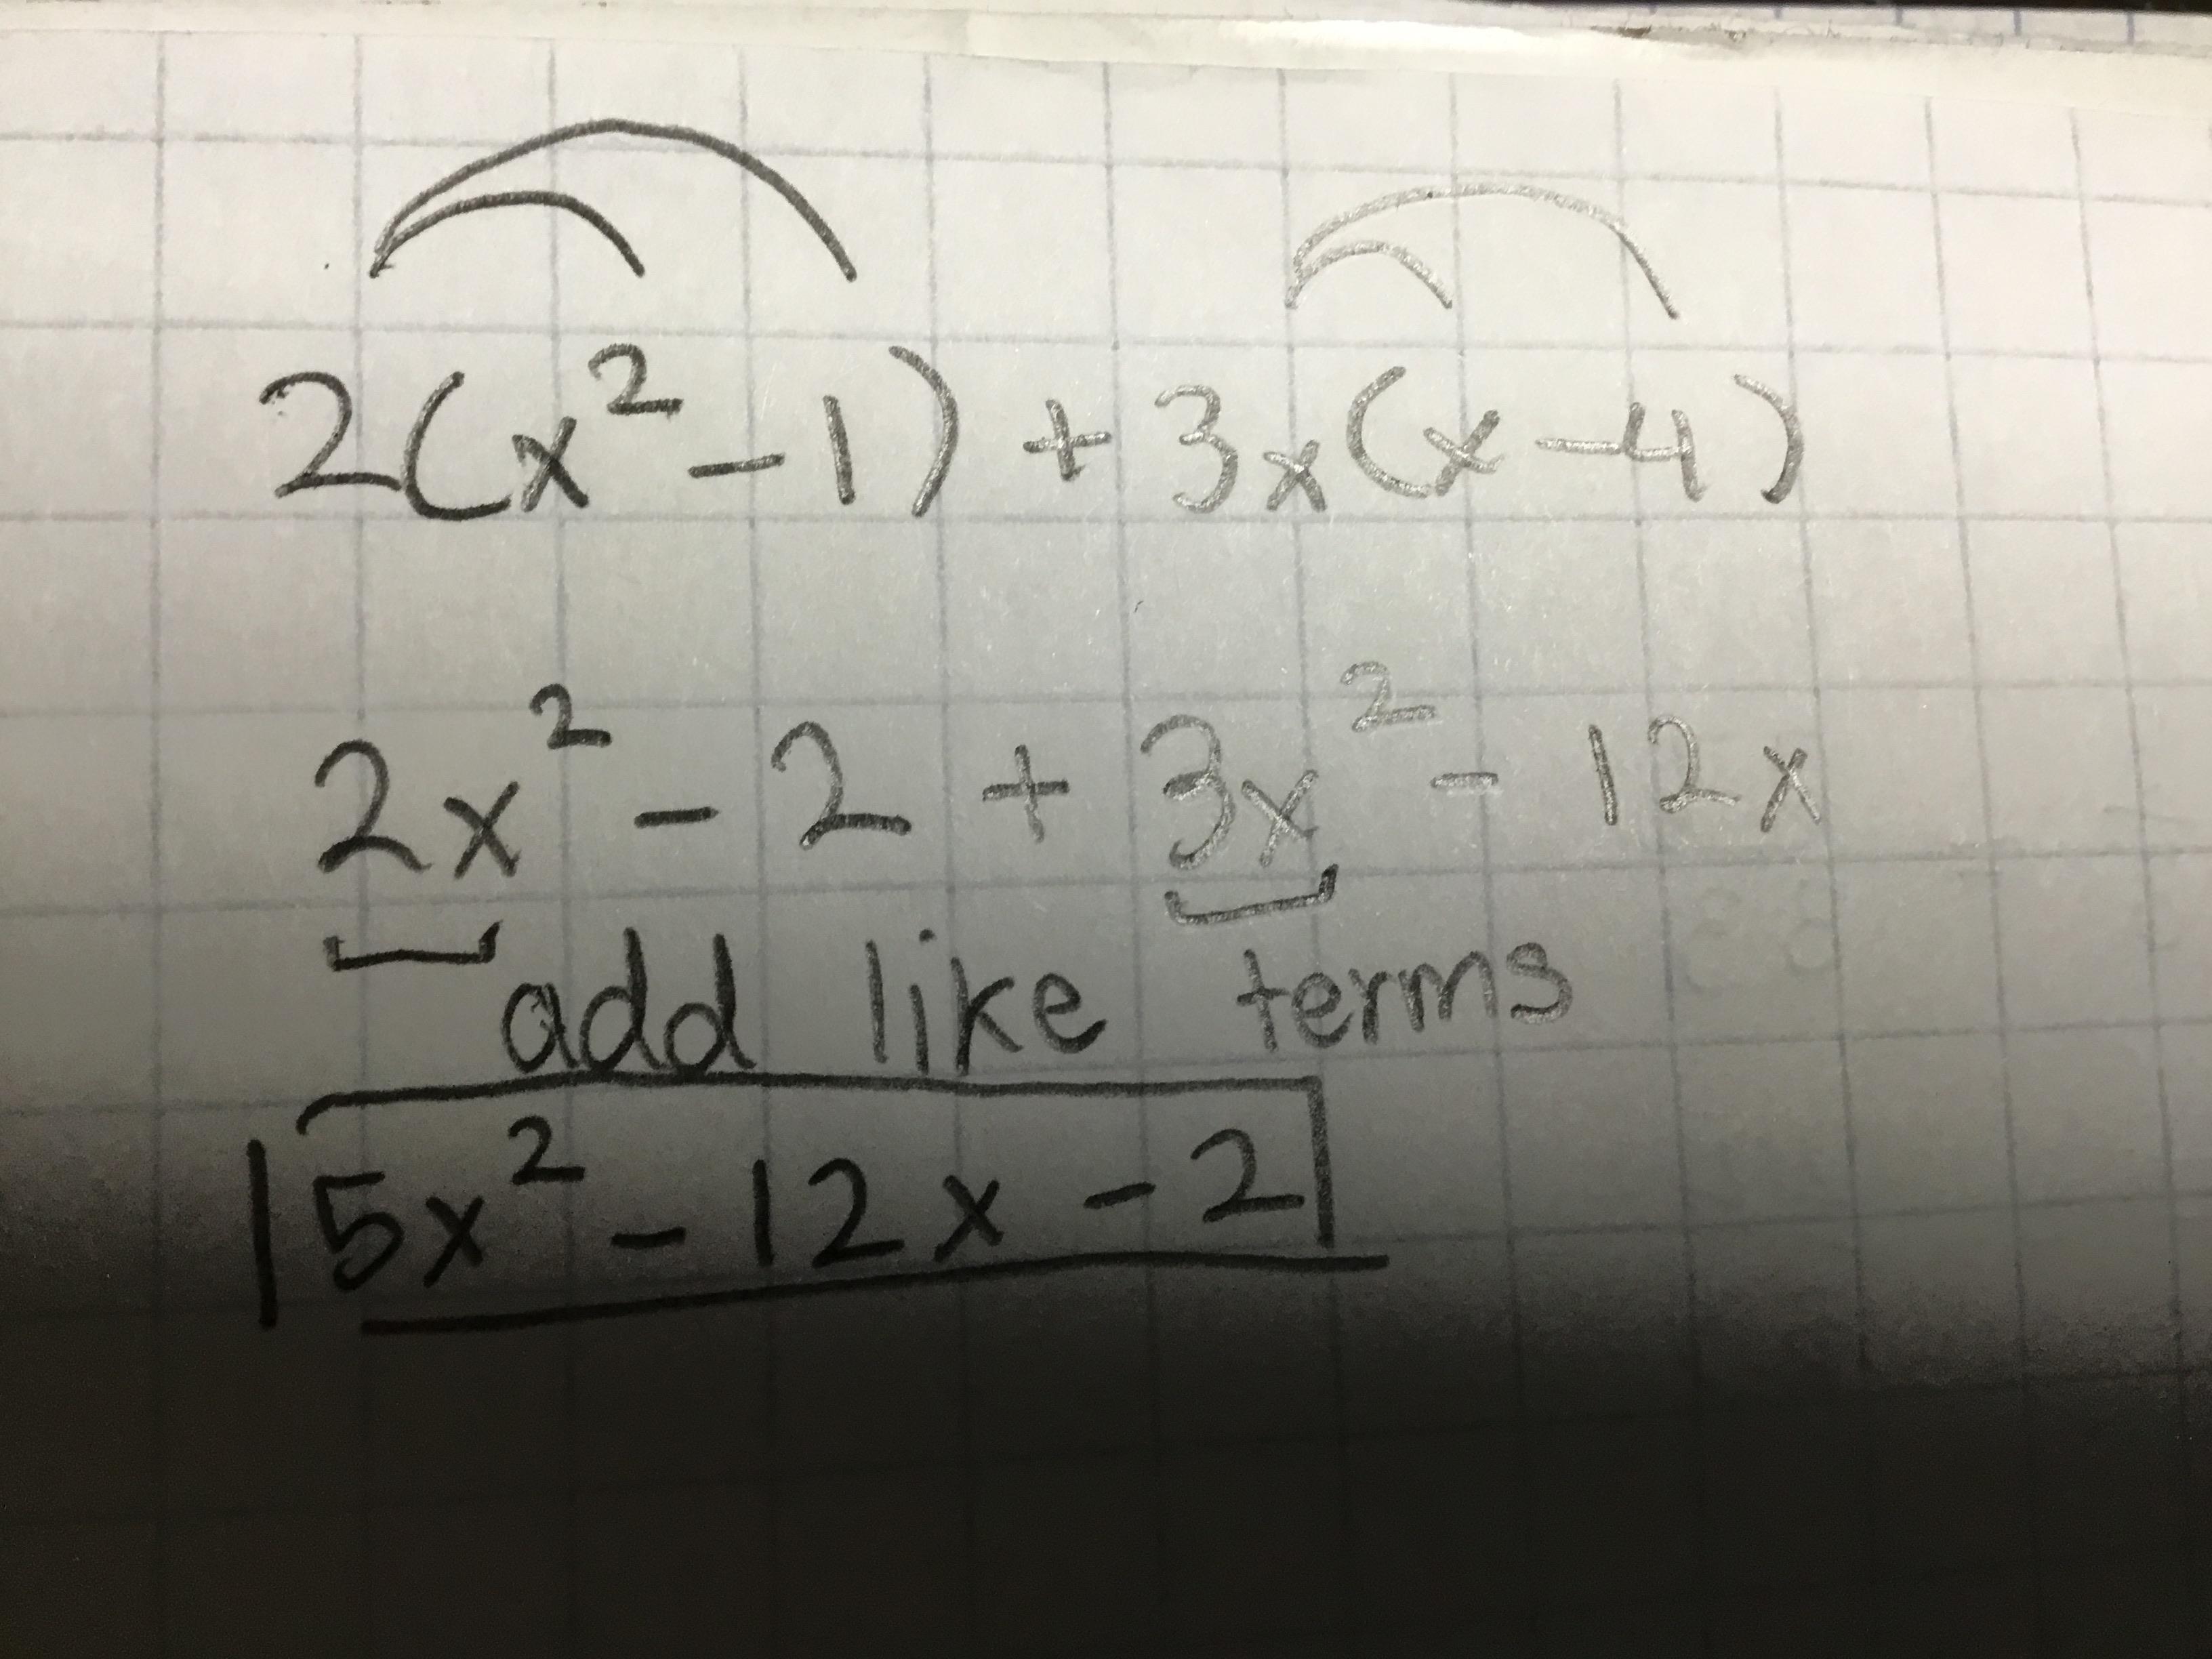 2(x² - 1) + 3x(x - 4)
2x² - 2 + 3x² - 12x
add like terms
5x² - 12x - 2